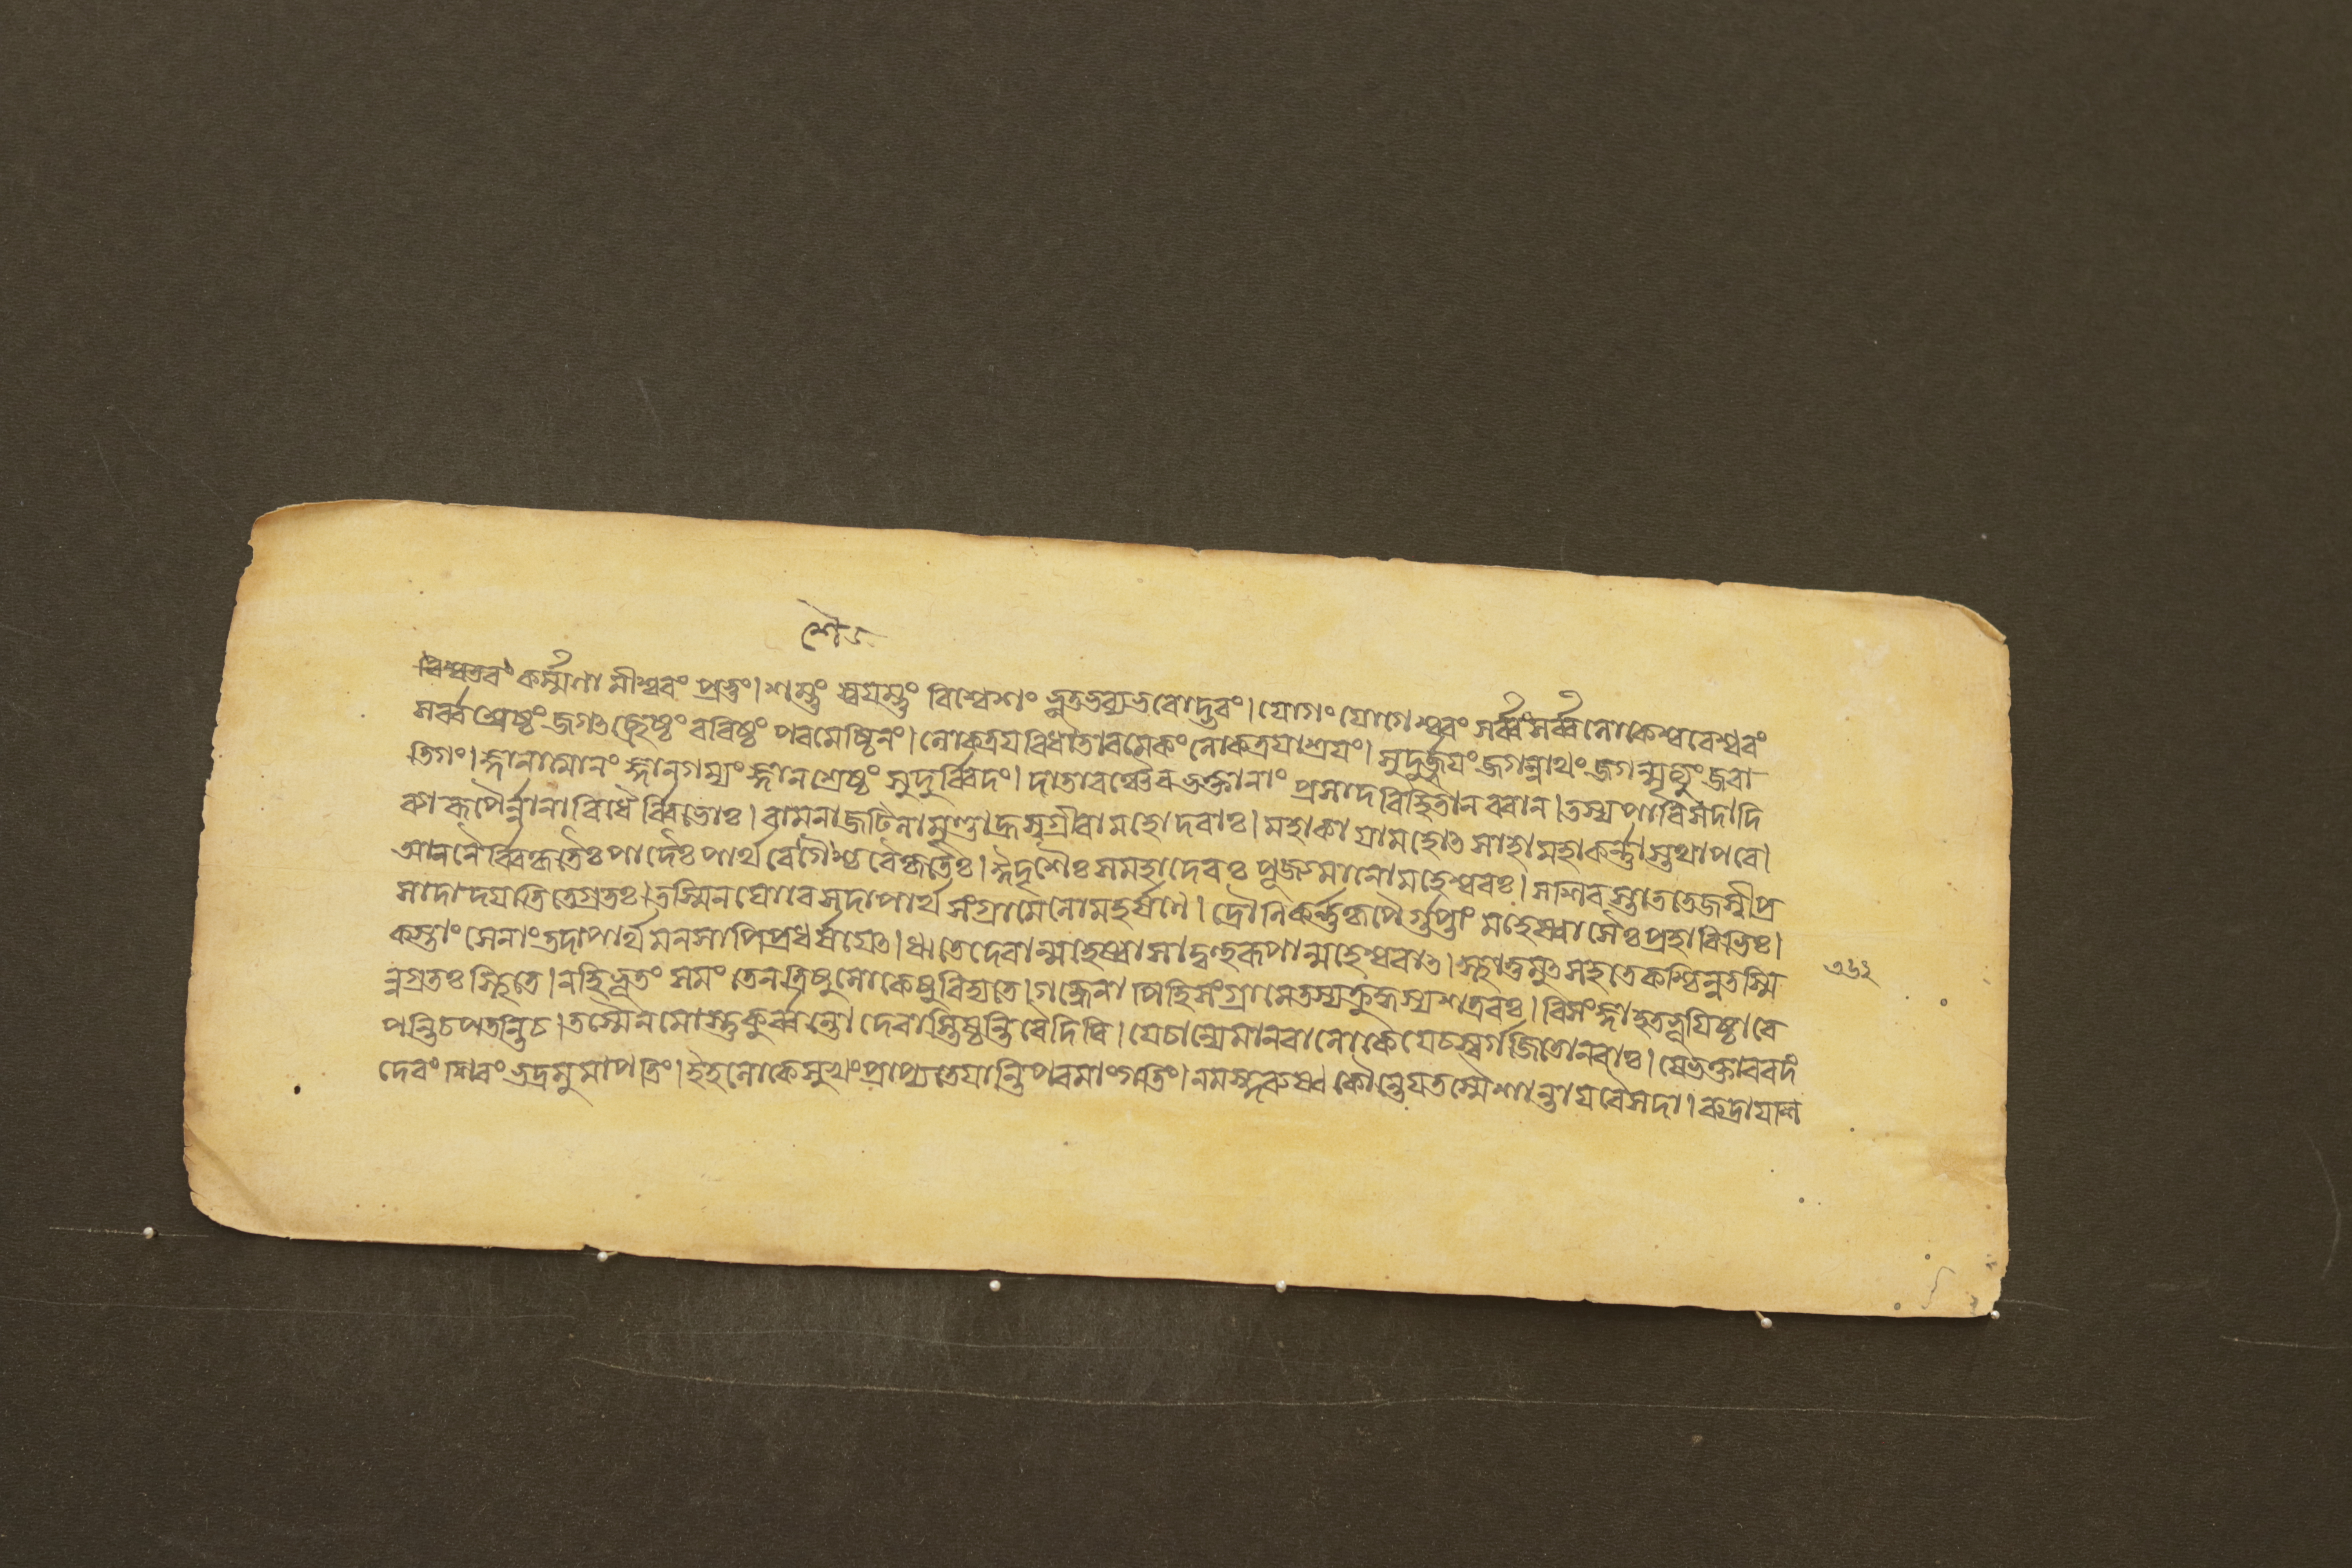 শৈ
বিশ্বতরং কর্ম্মণামীশ্বরং প্রভুং। শম্ভুং স্বয়ম্ভুং বিশ্বেশং ভূতভব্যভবোদ্ভবং। যোগং যোগেশ্বরং সর্ব্বং সর্ব্বলোকেশ্বরেশ্বরং
সর্ব্বশ্রেষ্ঠং জগচ্ছ্রেষ্ঠং বরিষ্ঠং পরমেষ্ঠিনং। লোকত্রয়বিধাতারমেকং লোকত্রয়াশ্রয়ং। সুদুর্জ্জয়ং জগন্নাথং জগন্মৃত্যুং জরা
তিগং। জ্ঞানাত্মানং জ্ঞানগম্যং জ্ঞানশ্রেষ্ঠং সুদুর্ব্বিদং। দাতারঞ্চৈব ভক্তানাং প্রসাদবিহিতান বরান। তস্য পারিসদা দি
ব্যা রূপৈর্ন্নানাবিধৈর্ব্বিভোঃ। বামনা জটিলা মুণ্ডা হ্রস্বগ্রীবা মহোদরাঃ। মহাকায়া মহোৎসাহা মহাকর্ণ্ণাস্তথাপরে।
আননৈর্ব্বিকৃতৈঃ পাদৈঃ পার্থ বেশৈশ্চ বৈকৃতৈঃ। ঈদৃশৈঃ স মহাদেবঃ পূজ্যমানো মহেশ্বরঃ। স শিবস্তাত তেজস্বী প্র
সাদাদ যাতি তেগ্রতঃ। তস্মিন ঘোরে সদা পার্থ সংগ্রামে লোমহর্ষণে। দ্রৌণিকর্ণ্ণকৃপৈর্গুপ্তাং মহেষ্বাসৈঃ প্রহারিভিঃ।
কস্তাং সেনাং তদা পার্থ মনসাপি প্রধর্ষয়েৎ। ঋতে দেবান্মহেষ্বাসাদ্বহুরূপান্মহেশ্বরাৎ। স্থাতুমুৎসহতে কশ্চিন্ন তস্মি
ন্নগ্রতঃ স্থিতে। নহি ভূতং সমং তেন ত্রিষু লোকেষু বিদ্যতে। গন্ধেনাপি হি সংগ্রামে তস্য ক্রুদ্ধস্য শত্রবঃ। বিসংজ্ঞা হতভূয়িষ্ঠা বে
৩৬২
পন্তি চ পতন্তি চ। তস্মৈ নমোস্তু কুর্ব্বন্তো দেবাস্তিষ্ঠন্তি বৈ দিবি। যে চান্যে মানবা লোকে যে চ স্বর্গজিতো নরাঃ। যে ভক্তা বরদং
দেবং শিবং ভদ্রমুমাপতিং। ইহলোকে সুখং প্রাপ্য তে যান্তি পরমাং গতিং। নমস্কুরুষ্ব কৌন্তেয় তস্মৈ শান্তায় বৈ সদা। রুদ্রায় শ